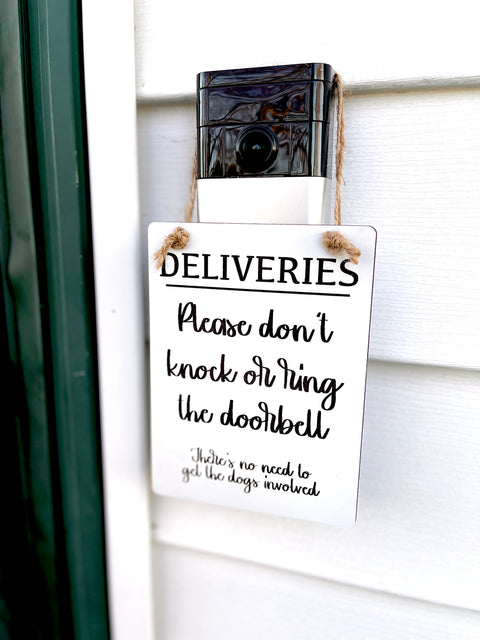 DELIVERIES
Please don't
knock or ring
the doorbell
There's no need to
get the dogs involved